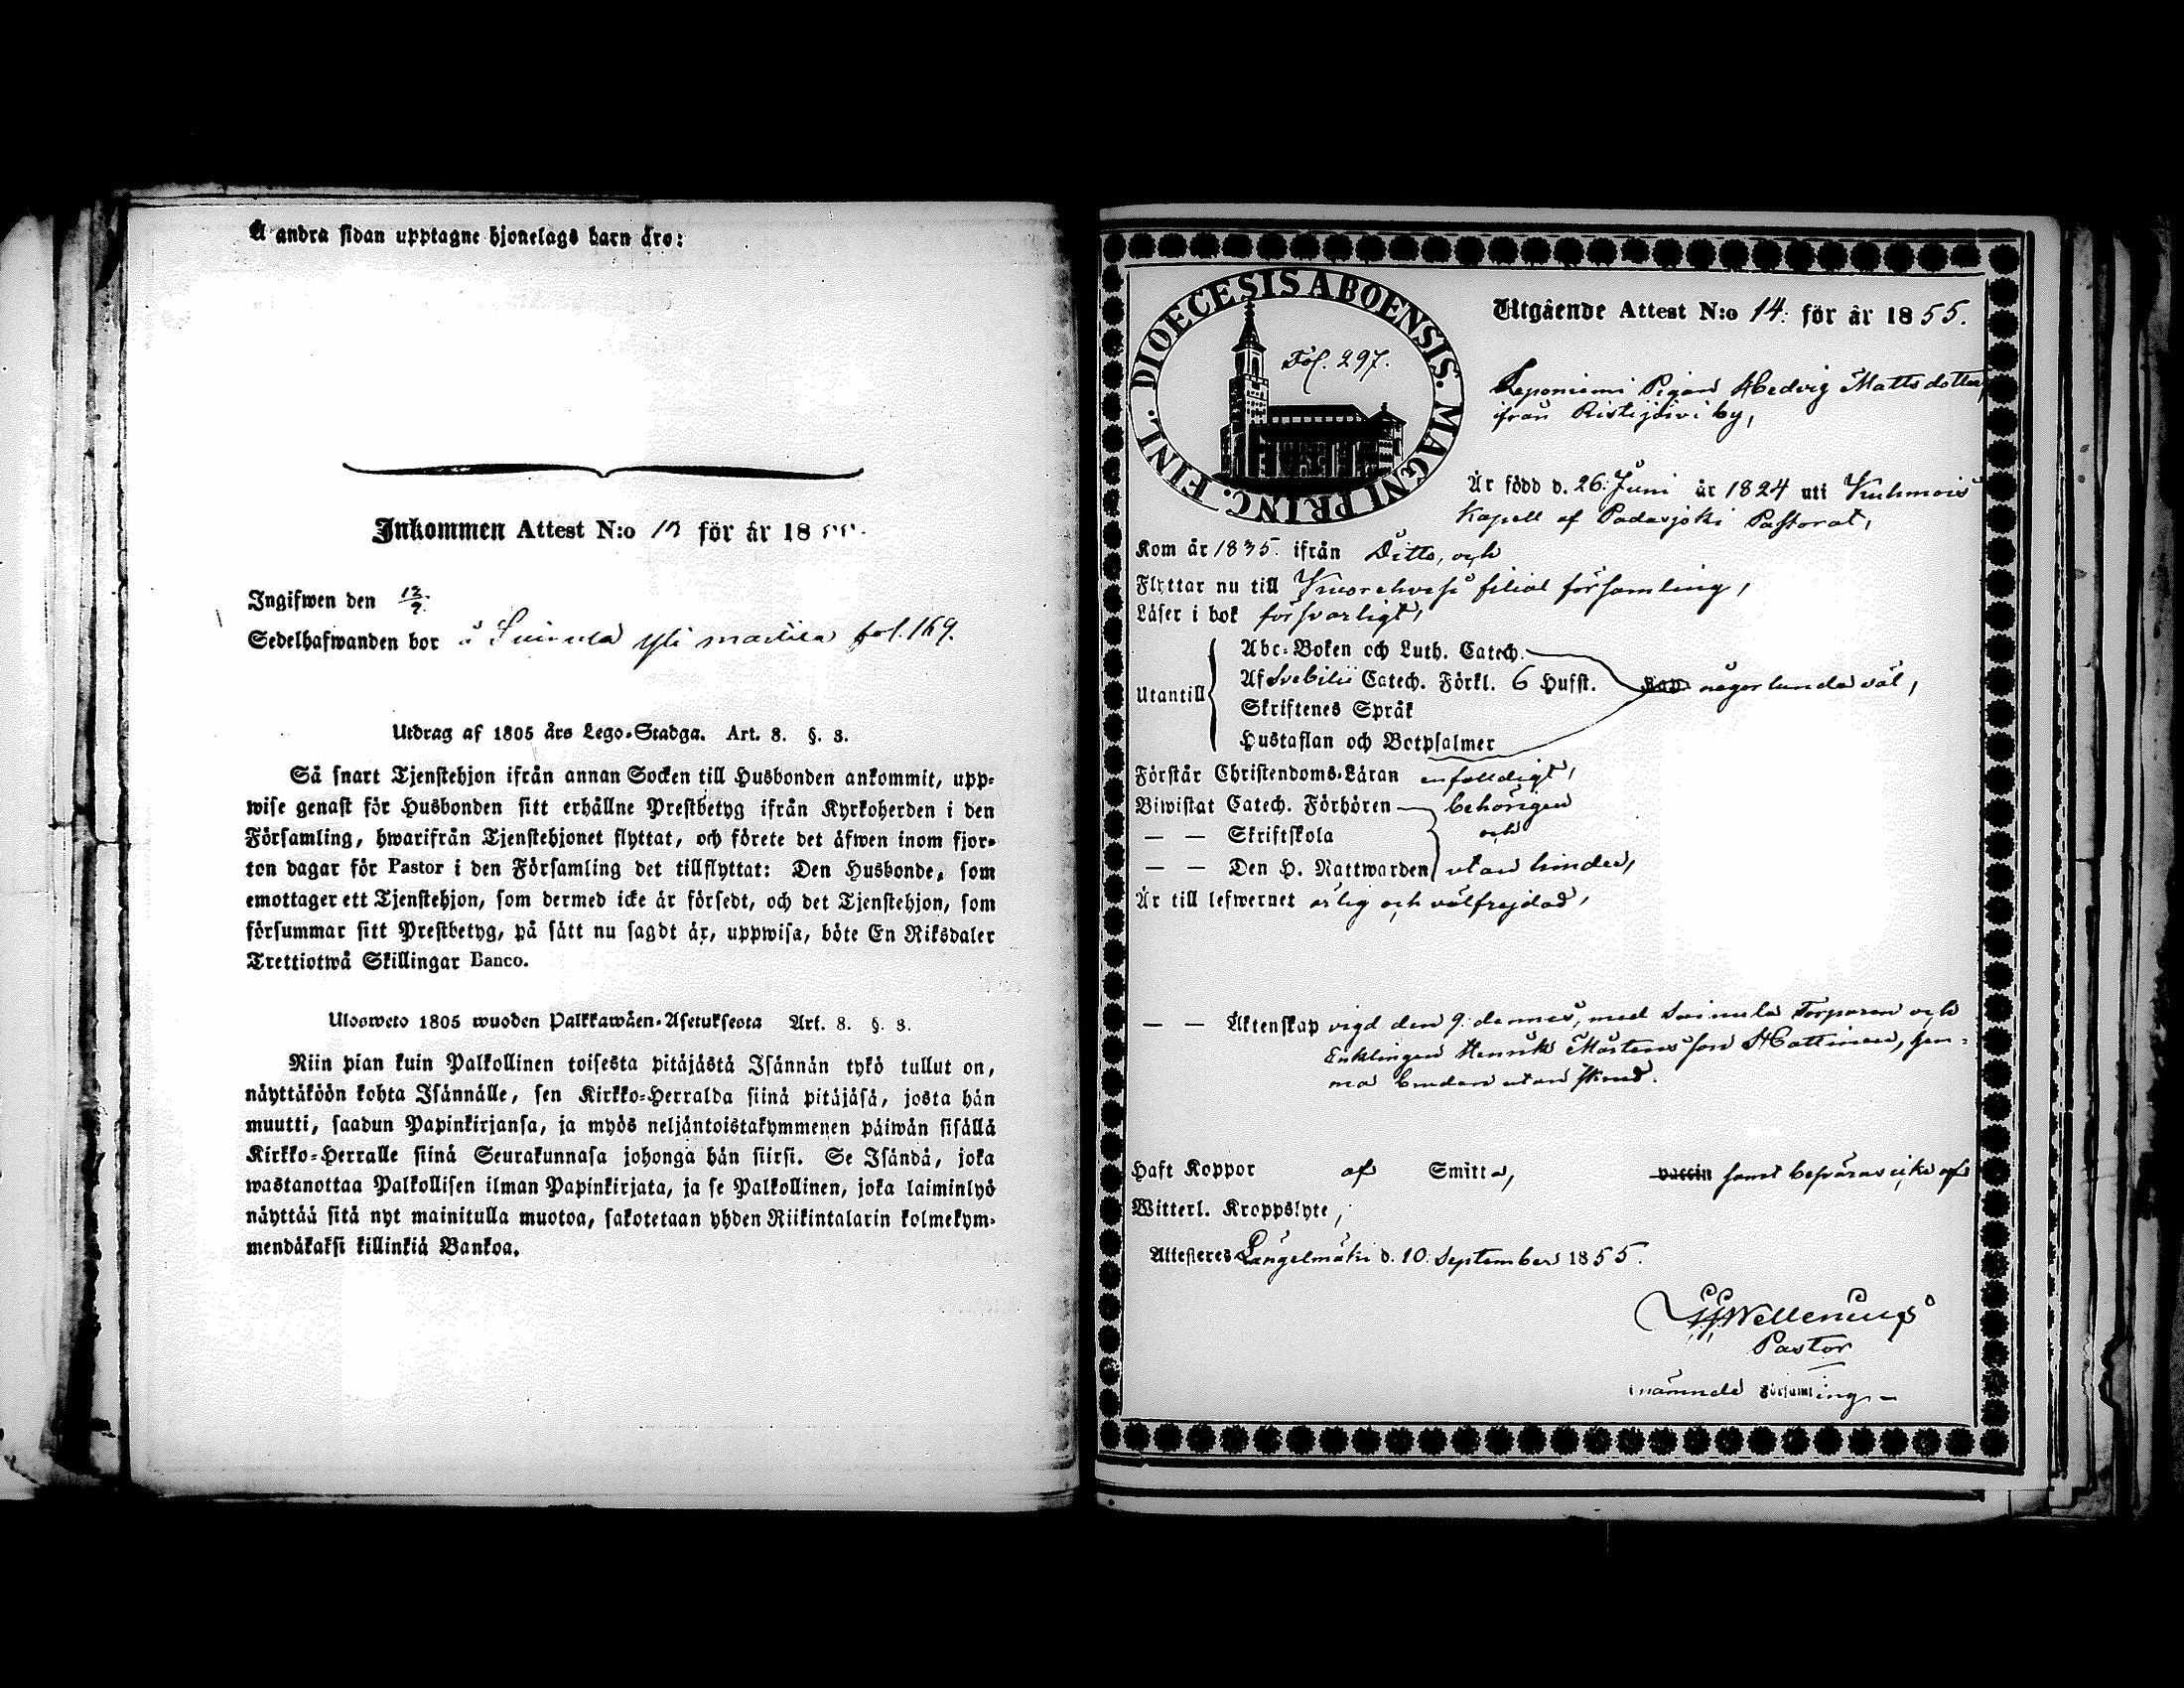 A andra sidan upptagne hjonelags barn äro:
Inkommen Attest N:o för år 18
Ingifwen den 12/9.
Sedelhafwanden bor å Suinula Yli fol. 169.
Utdrag af 1805 års Lego-Stadga. Art. 8. §. 3.
Så snart Tjenstehjon ifrån annan Socken till Husbonden ankommit, upp-
wise genast för Husbonden sitt erhållne Prestbetyg ifrån Kyrkoherden i den
Församling, hwarifrån Tjenstehjonet flyttat, och förete det äfwen inom fjor-
ton dagar för Pastor i den Församling det tillflyttat: Den Husbonde, som
emottager ett Tjenstehjon, som dermed icke är försedt, och det Tjenstehjon, som
försummar sitt Prestbetyg, på sätt nu sagdt är, uppwisa, böte En Riksdaler
Trettiotwå Skillingar Banco.
Uloswето 1805 wuoden Palkkawäen-Asetuksesta Art. 8. §. 3.
Niin pian kuin Palkollinen toisesta pitäjästä Isännän tykö tullut on,
näyttäköön kohta Isännälle, sen Kirkko-Herralda siinä pitäjäsä, josta hän
muutti, saadun Papinkirjansa, ja myös neljäntoistakymmenen päiwän sisällä
Kirkko-Herralle siinä Seurakunnasa johonga hän siirsi. Se Isändä, joka
wastanottaa Palkollisen ilman Papinkirjata, ja se Palkollinen, joka laiminlyö
näyttää sitä nyt mainitulla muotoa, sakotetaan yhden Riikintalarin kolmekym-
mendäkaksi killinkiä Bankoa.
DIOECESIS ABOENSIS. MAGNI PRINC. FINL.
Fol. 297.
Utgående Attest N:o 14. för år 1855.
Leponiemi Pigan Hedvig Mattsdotter,
ifrån Ristijärvi by,
Är född d. 26. Juni år 1824 uti Kuhmois
Kapell af Padasjoki Pastorat,
Kom år 1835. ifrån Ditto, och
Flyttar nu till Kuorehvesi filial församling,
Läser i bok försvarligt,
Utantill
Abc-Boken och Luth. Catech.
Af Svebilii Catech. Förkl. 6 Hufst. någorlunda väl,
Skriftenes Språk
Hustaflan och Botpsalmer
Förstår Christendoms-Läran enfalldigt,
Biwistat Catech. Förhören behörigen
— — Skriftskola och
— — Den H. Nattwarden utan hinder,
Är till lefwernet ärlig och välfrejdad,
— — Äktenskap vigd den 9. dennes, med Suinula Torparen och
Enklingen Henrik Mårtensson Hattinen, hem-
ma
Haft Koppor af Smitta, vaccin samt besväras icke af
Witterl. Kroppslyte,
Attesteres Längelmäki d. 10. September 1855.
Wellenius
Pastor
i nämnde Församling. —